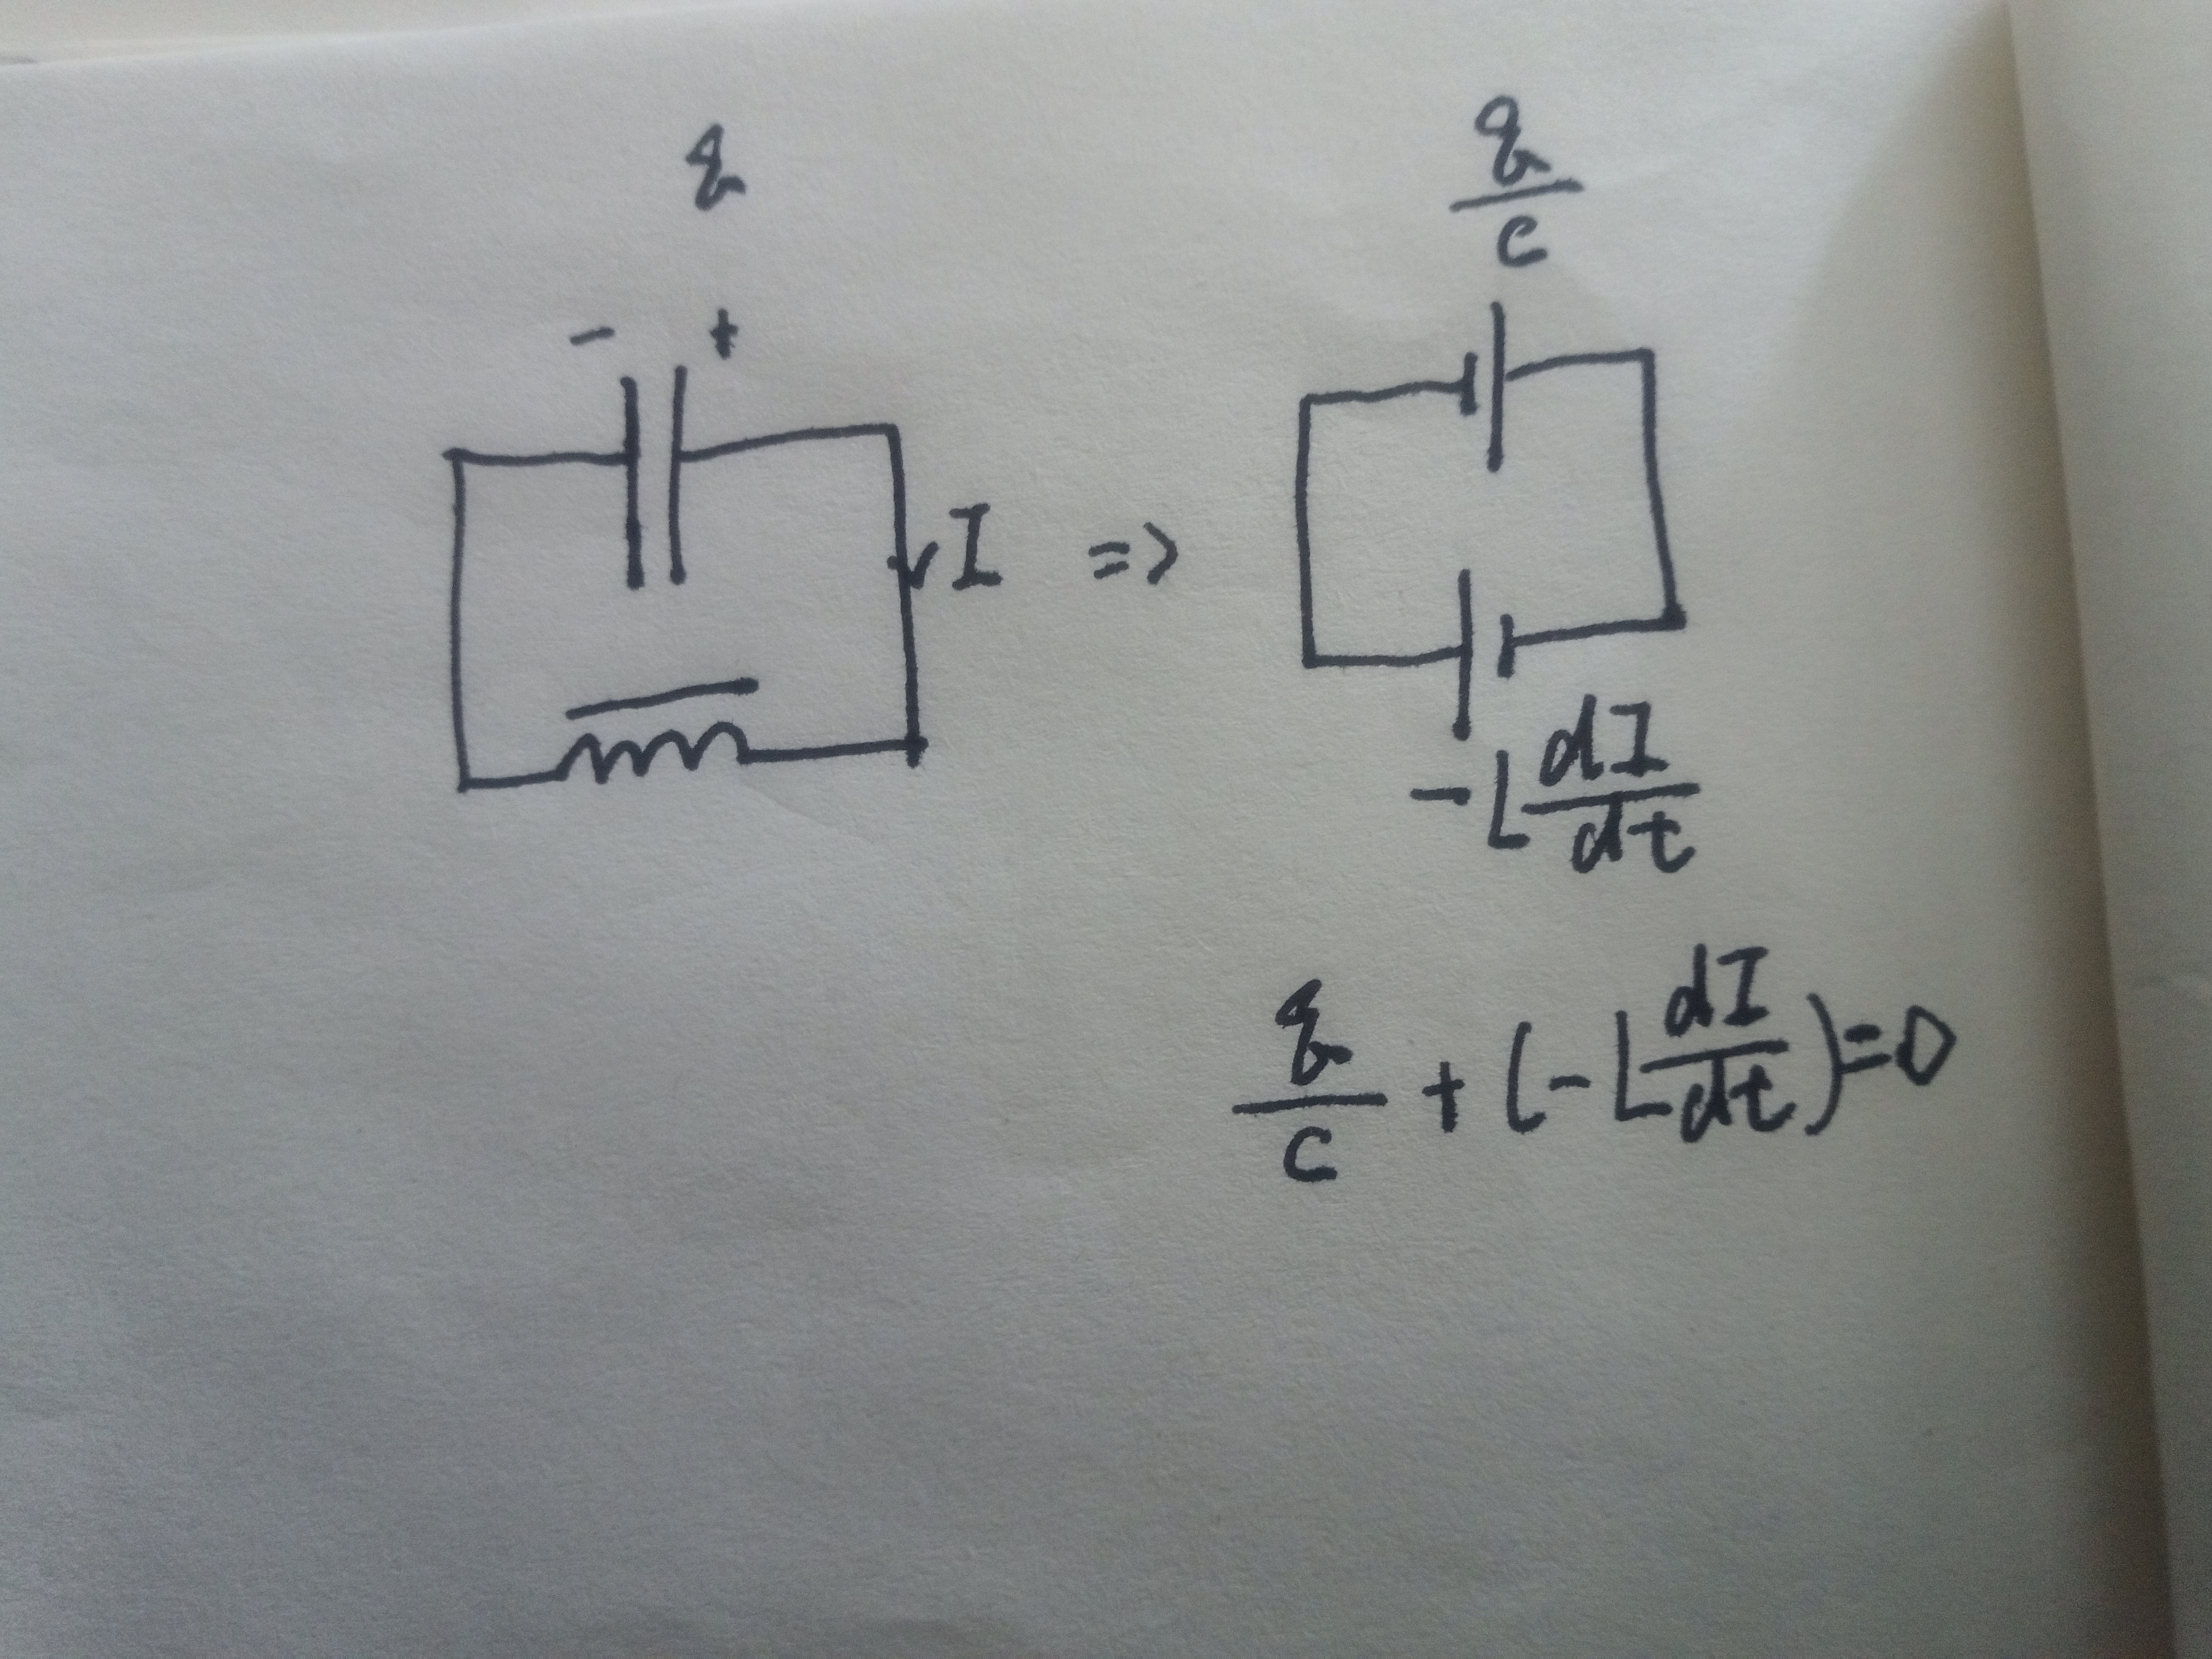 q
- +
I =>
q/c
-L dI/dt
q/c + (-L dI/dt) = 0